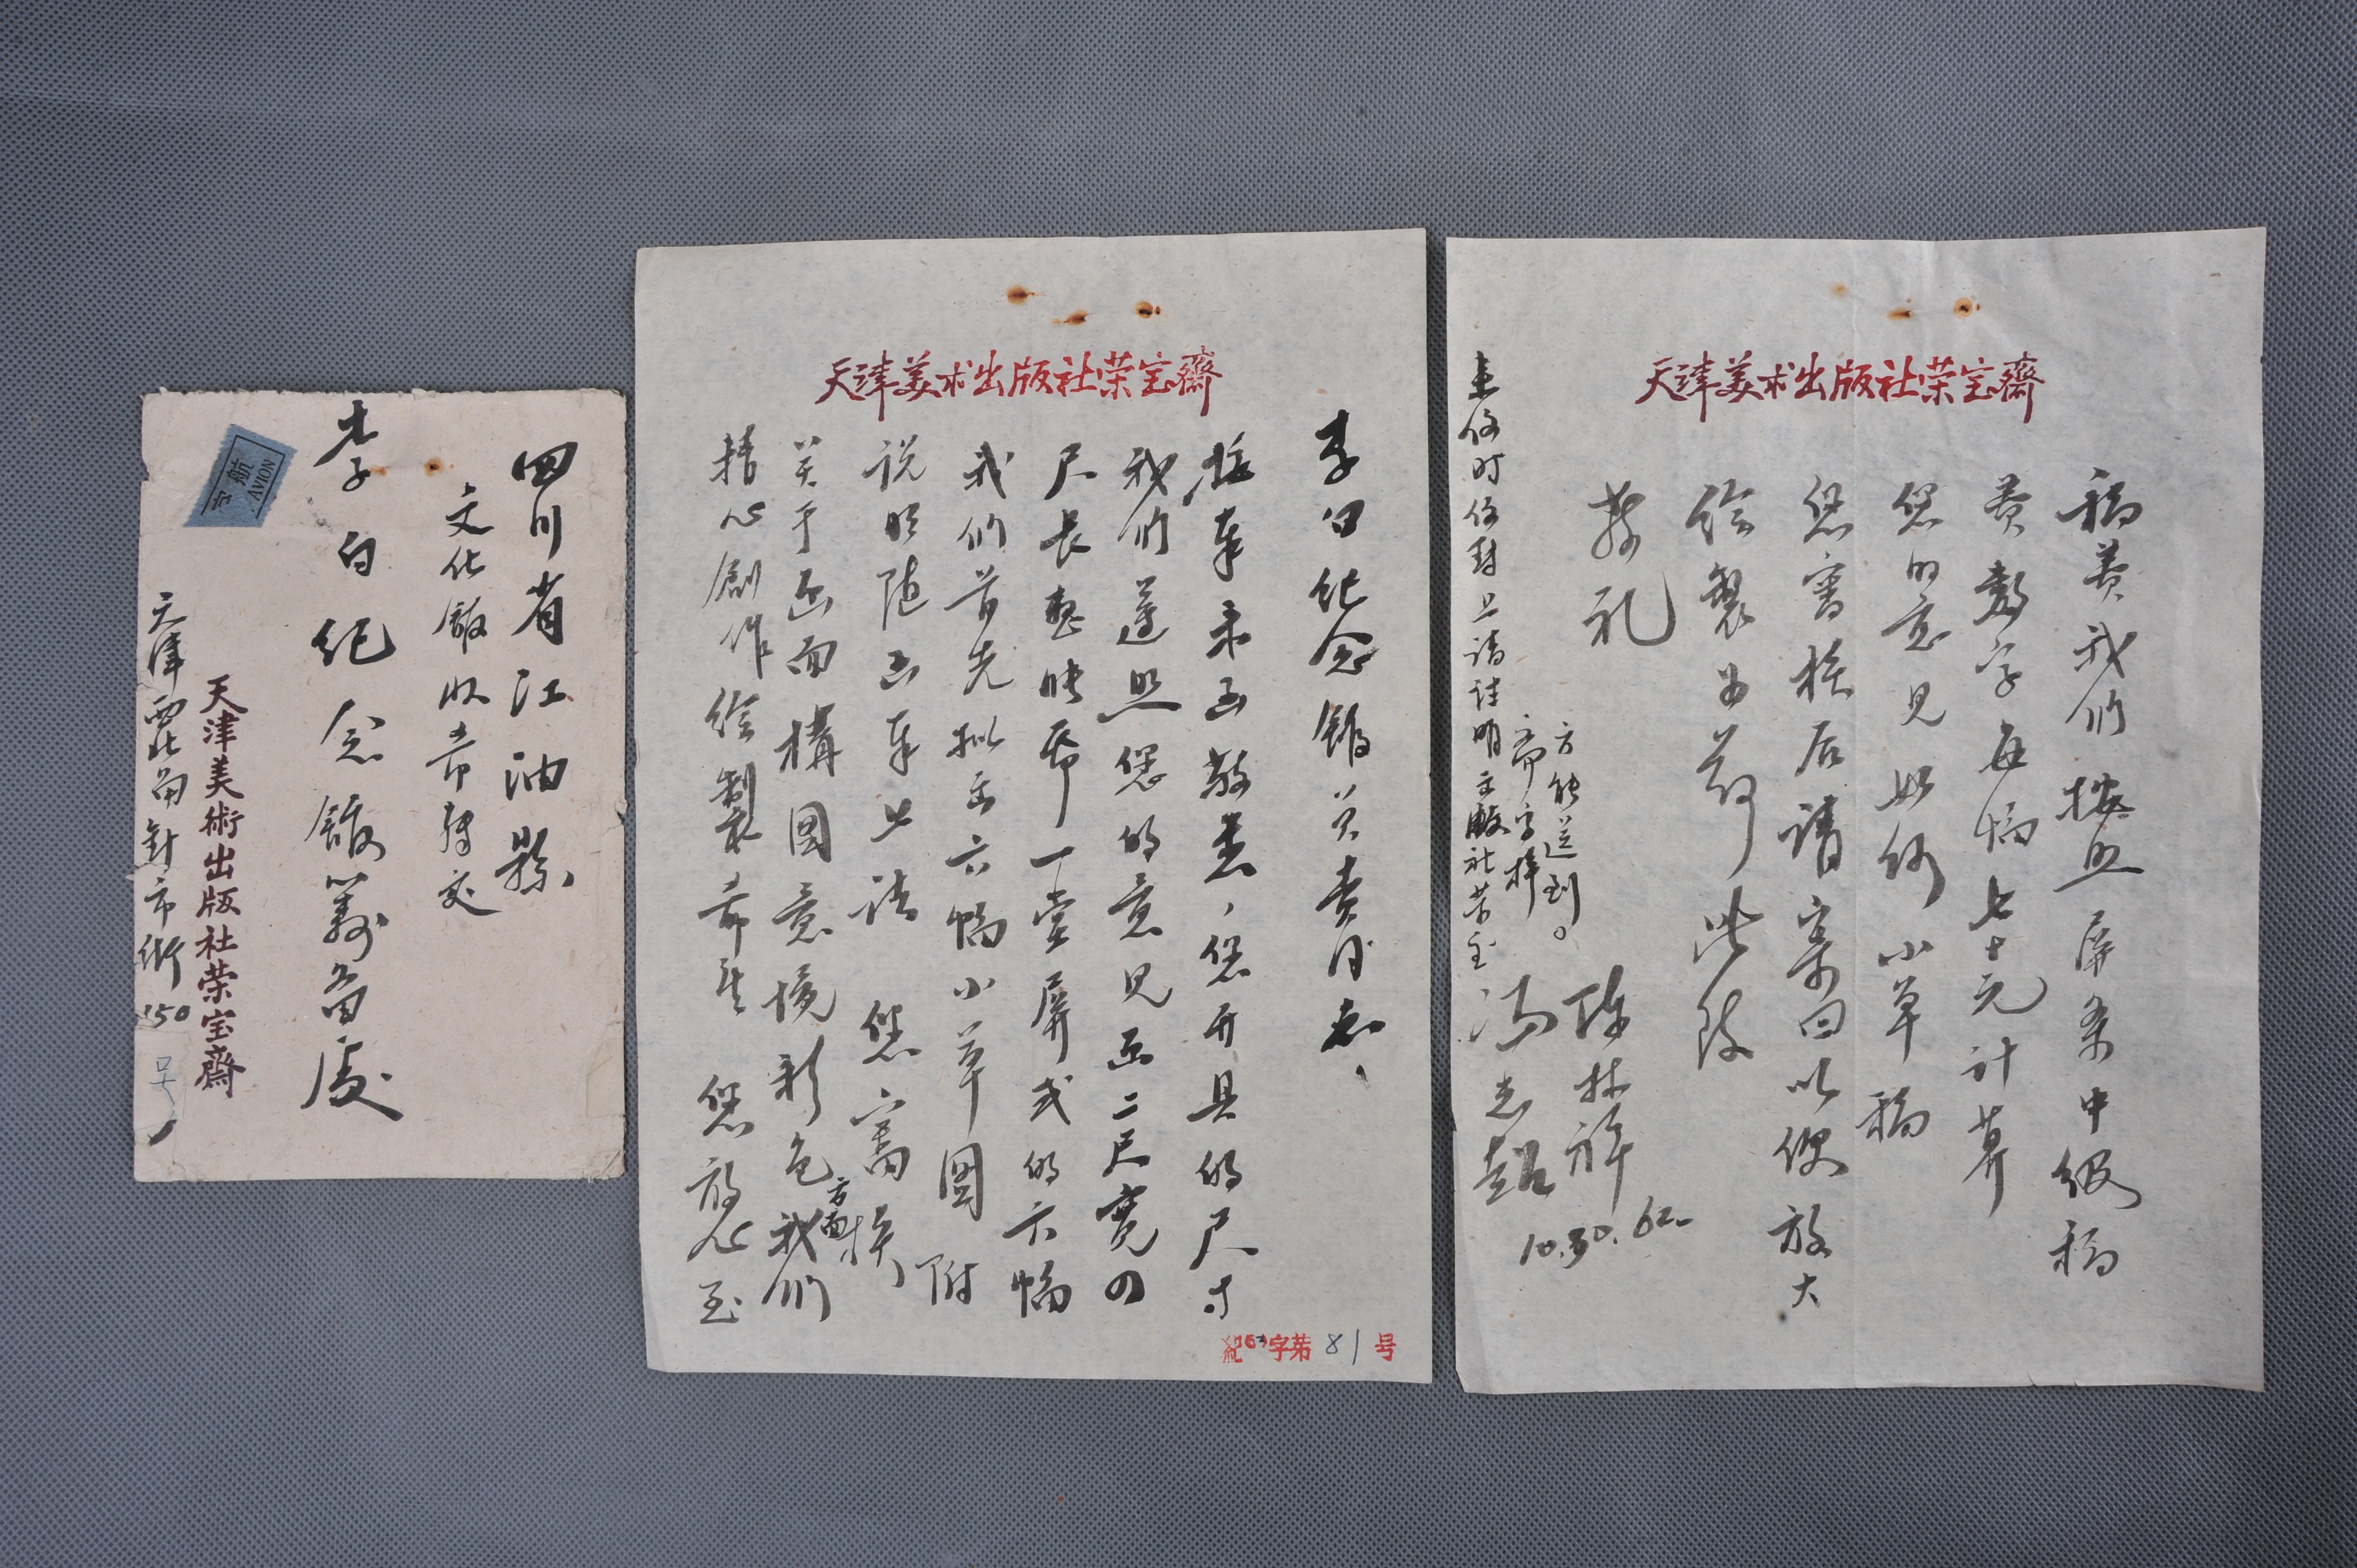 四川省江油縣
文化館收希轉交
李白纪念馆筹备處
天津美術出版社荣宝齋
天津西北角針市街150号
航空
AVION
天津美术出版社荣宝齋
李白纪念馆负责同志、
接奉来函敬悉，您开具的尺寸
我们遵照您的意见画二尺宽四
尺长整张幂一堂屏式的六幅
我们首先拟出六幅小草图 附
说明随函奉上请 您審核
关于画面構图意境彩色方面我们
精心創作绘製希望 您放心至
紀63字第81号
天津美术出版社荣宝齋
稿费我们按照屏条中级稿
费数字每幅七十元计算
您的意见如何 小草稿
您審核后請寄回以便放大
绘製为荷 此致
敬礼
陈林祥
冯志超
10.30.62
来信时信封上请註明出版社荣宝
齋字样
方能送到。